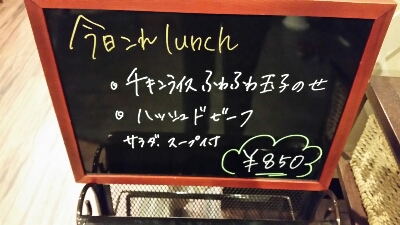 今日のlunch
・チキンライスふわふわ玉子のせ
・ハッシュドビーフ
サラダ、スープ付
¥850